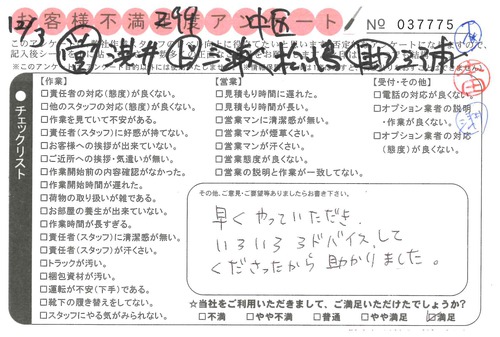 お客様不満足度アンケート
No 037775
12/3
中区
チェックリスト
【作業】
□責任者の対応(態度)が良くない。
□他のスタッフの対応(態度)が良くない。
□作業を見ていて不安がある。
□責任者(スタッフ)に好感が持てない。
□お客様への挨拶が出来ていない。
□ご近所への挨拶・気遣いが無い。
□作業開始前の内容確認がなかった。
□作業開始時間が遅れた。
□荷物の取り扱いが雑である。
□お部屋の養生が出来ていない。
□作業時間が長すぎる。
□責任者(スタッフ)に清潔感が無い。
□責任者(スタッフ)が汗くさい。
□トラックが汚い。
□梱包資材が汚い。
□運転が不安(下手)である。
□靴下の履き替えをしてない。
□スタッフにやる気がみられない。
【営業】
□見積もり時間に遅れた。
□見積もり時間が長い。
□営業マンに清潔感が無い。
□営業マンが煙草くさい。
□営業マンが汗くさい。
□営業態度が良くない。
□営業の説明と作業が一致してない。
【受付・その他】
□電話の対応が良くない。
□オプション業者の説明
・作業が良くない。
□オプション業者の対応
(態度)が良くない。
その他、ご意見・ご要望等ありましたらお書き下さい。
早くやっていただき、
いろいろアドバイスして
くださったから助かりました。
☆当社をご利用いただきまして、ご満足いただけたでしょうか?
□不満 □やや不満 □普通 □やや満足 ☑満足